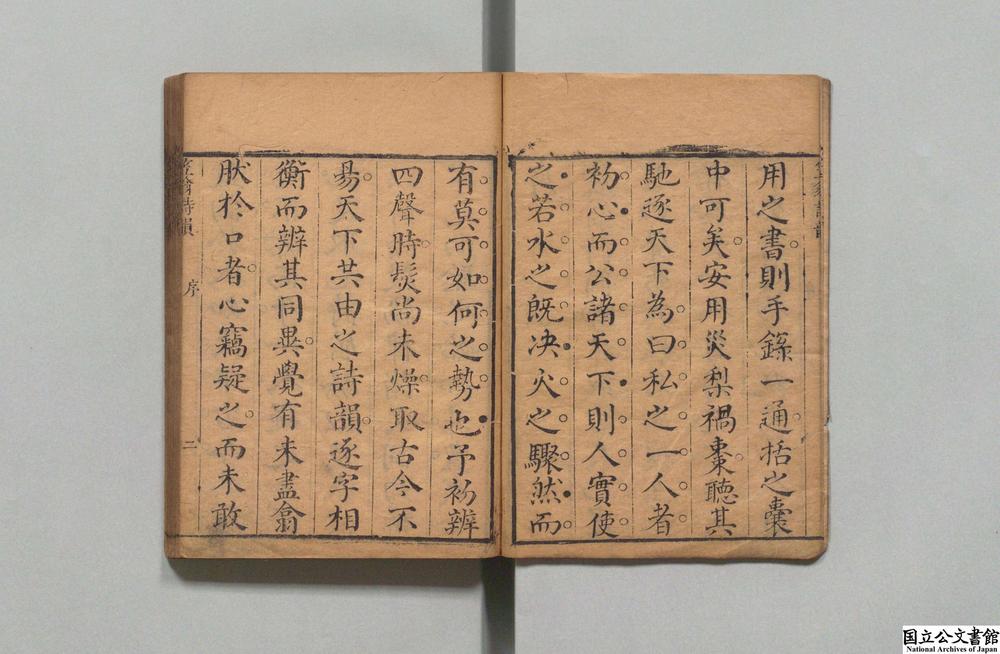 用之書則手錄一通括之囊
中可矣安用災梨禍棗聽其
馳逐天下為曰私之一人者
初心而公諸天下則人實使
之若水之既决火之驟然而
有莫可如何之勢也予初辨
四聲時髮尚未燥取古今不
易天下共由之詩韻逐字相
衡而辨其同異覺有未盡翕
肰於口者心竊疑之而未敢
笠翁詩韻
序
二
国立公文書館
National Archives of Japan